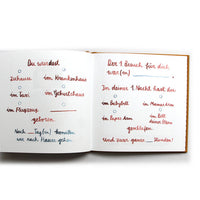 Du wurdest
Zuhause im Krankenhaus
im Taxi im Geburtshaus
im Flugzeug
geboren.
Nach __ Tag(en) konnten
wir nach Hause gehen.
Der 1. Besuch für dich
war(en)
In deiner 1. Nacht hast du
im Babybett in Mamas Arm
in Papas Arm im Bett deiner Eltern
geschlafen.
Und zwar ganze __ Stunden!